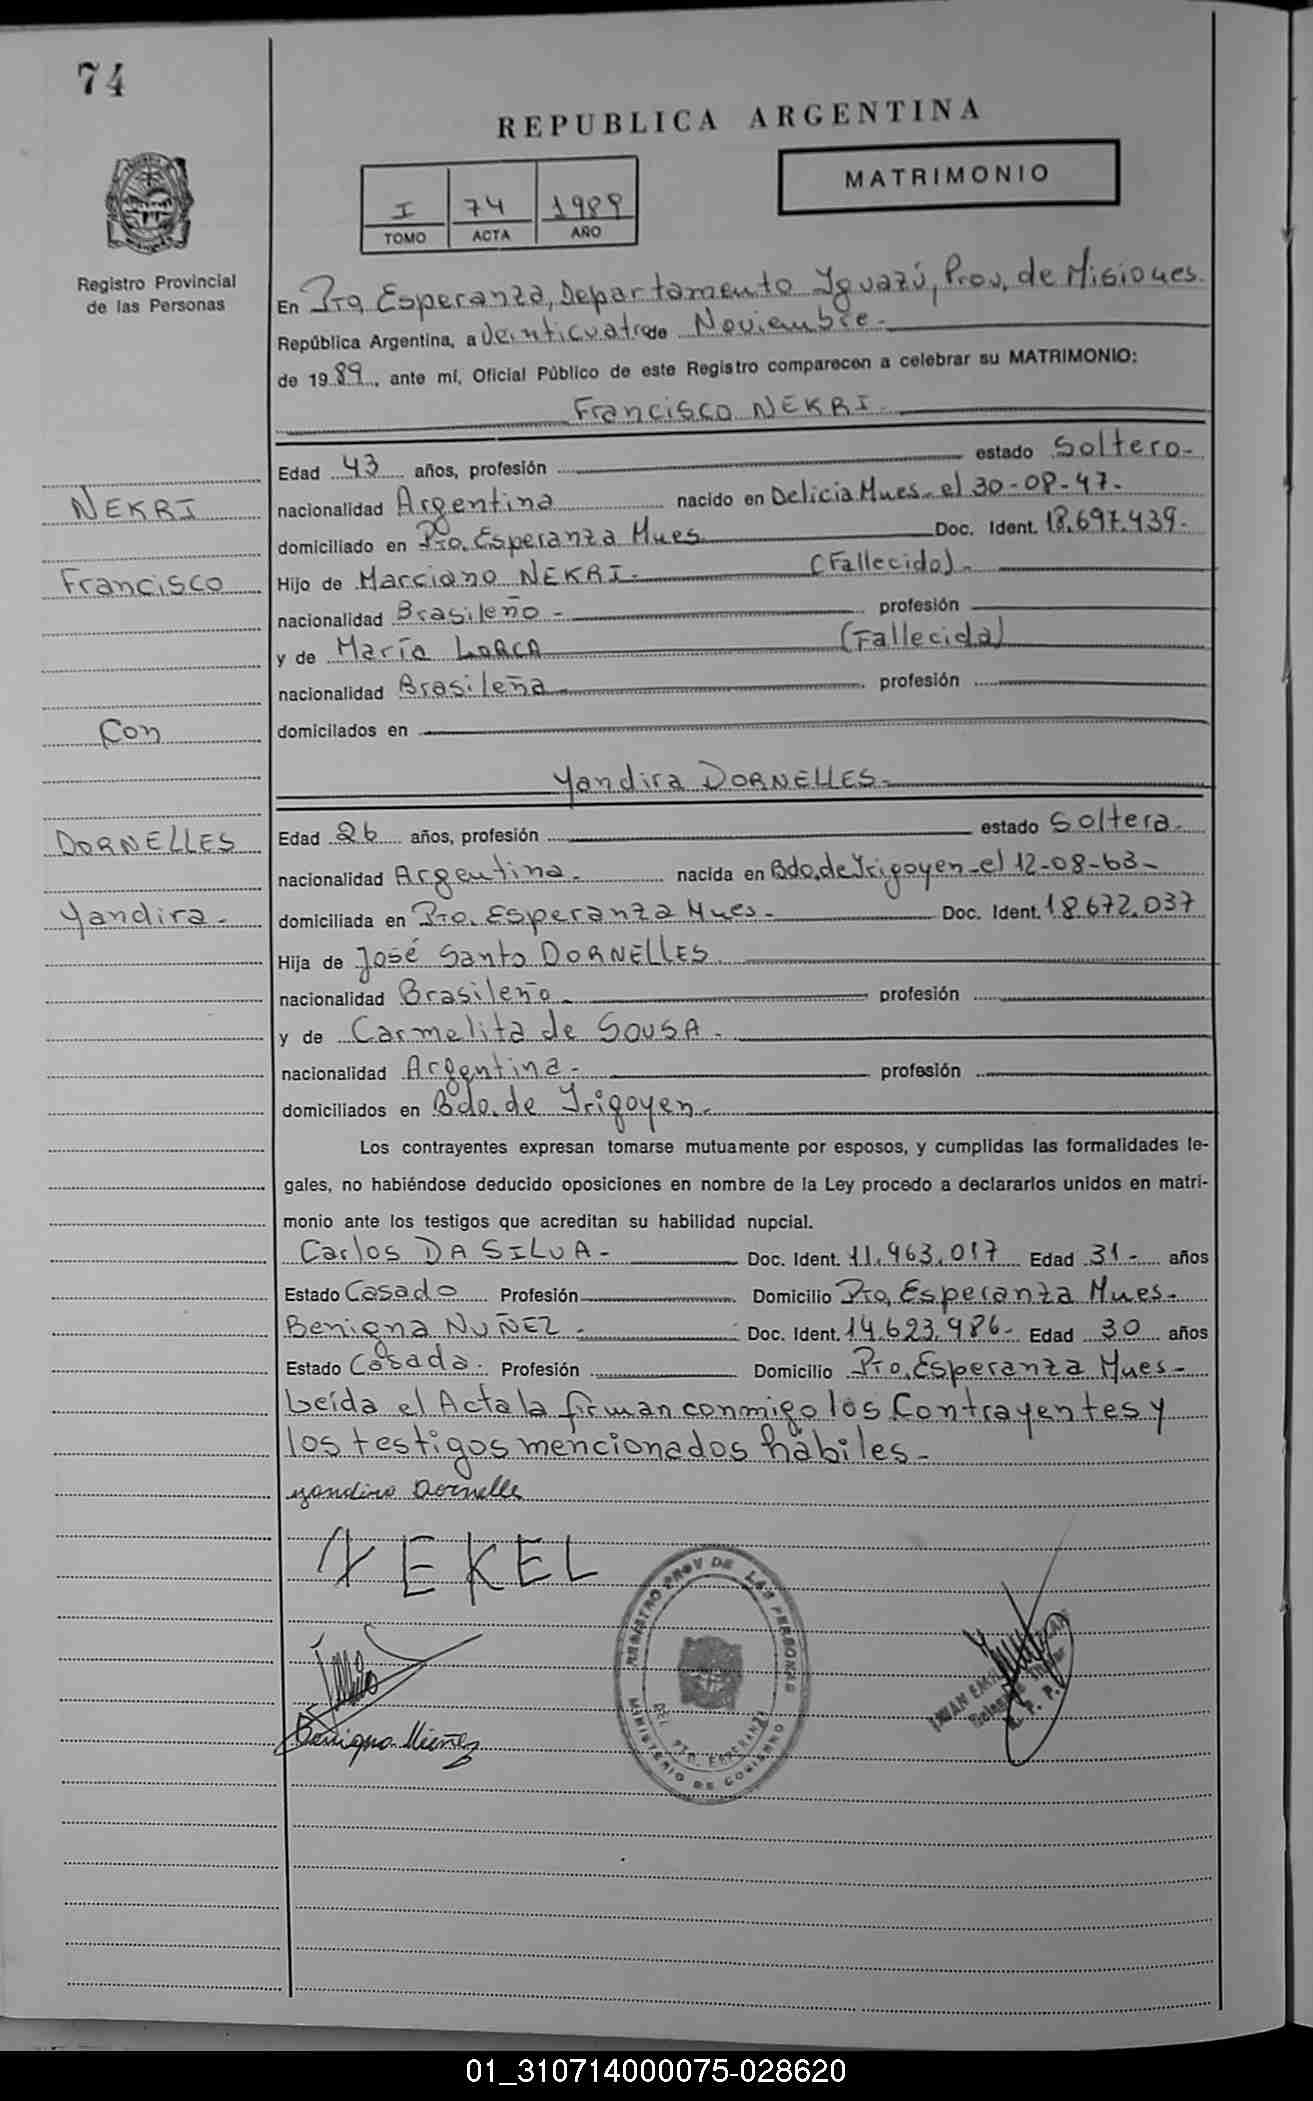 74
REPUBLICA ARGENTINA
MATRIMONIO
I 74 1989
TOMO ACTA AÑO
Registro Provincial
de las Personas
En Pto, Esperanza, Departamento Yguazú, Prov, de Misiones.
República Argentina, a Veinticuatro de Noviembre.-
de 1989., ante mí, Oficial Público de este Registro comparecen a celebrar su MATRIMONIO:
Francisco NEKRI.
Edad 43 años, profesión estado Soltero-
NEKRI
nacionalidad Argentina nacido en Delicia Mnes. el 30-08-47.
domiciliado en Pto. Esperanza Mnes Doc. Ident. 18.697.439.
Francisco
Hijo de Marciano NEKRI. (Fallecido).
nacionalidad Brasileño - profesión
y de María LORCA (Fallecida)
nacionalidad Brasileña. profesión
Con
domicilados en
Yandira DORNELLES-
DORNELLES
Edad 26 años, profesión estado Soltera.
nacionalidad Argentina. nacida en Bdo. de Yrigoyen-el 12-08-63-
Yandira-
domiciliada en Pto. Esperanza Mnes- Doc. Ident. 18.672.037
Hija de José Santo DORNELLES
nacionalidad Brasileño profesión
y de Carmelita de SOUSA.
nacionalidad Argentina- profesión
domiciliados en Bdo. de Yrigoyen.
Los contrayentes expresan tomarse mutuamente por esposos, y cumplidas las formalidades le-
gales, no habiéndose deducido oposiciones en nombre de la Ley procedo a declararlos unidos en matri-
monio ante los testigos que acreditan su habilidad nupcial.
Carlos DA SILVA- Doc. Ident. 11.963.017 Edad 31- años
Estado Casado Profesión Domicilio Pto, Esperanza Mnes-
Benigna NUÑEZ- Doc. Ident. 14.623.986- Edad 30 años
Estado Casada. Profesión Domicilio Pto. Esperanza Mnes-
Leída el Acta la firman conmigo los Contrayentes y
los testigos mencionados hábiles-
yandira dornelle
NEKEL
Benigna Núñez
REGISTRO PROV DE LAS PERSONAS
DEL. PTO. ESPERANZA
MINISTERIO DE GOBIERNO
R. P. P.
01_310714000075-028620